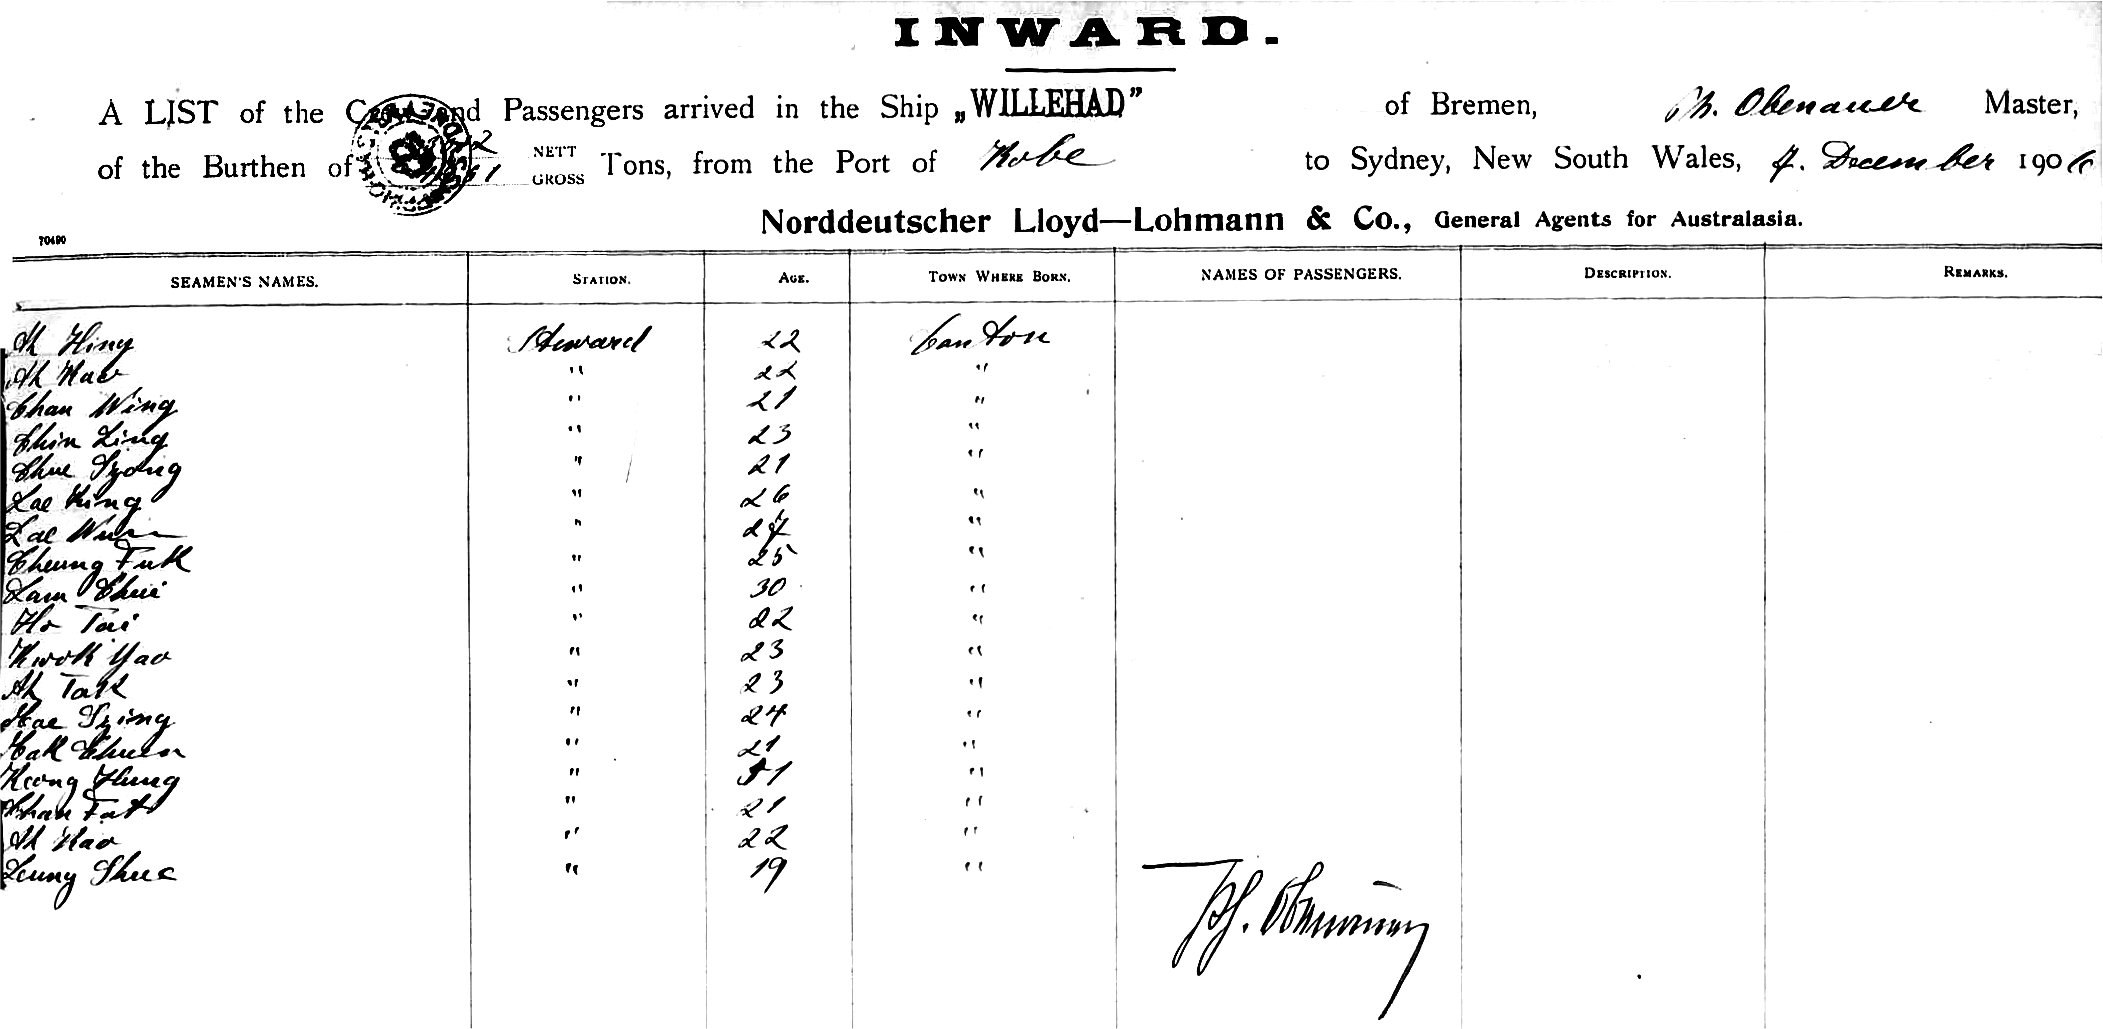 INWARD.
A LIST of the Crew and Passengers arrived in the Ship „WILLEHAD” of Bremen, Ph. Obenauer Master,
of the Burthen of NETT GROSS Tons, from the Port of Kobe to Sydney, New South Wales, 7. December 1906
Norddeutscher Lloyd—Lohmann & Co., General Agents for Australasia.
70490
SEAMEN'S NAMES. STATION. AGE. TOWN WHERE BORN. NAMES OF PASSENGERS. DESCRIPTION. REMARKS.
Ah Hing Steward 22 Canton
Ah Kao " 22 "
Chan Wing " 21 "
Chin Ling " 23 "
Chue Szong " 21 "
Lae King " 26 "
Lae " "
Cheung Fuk " 25 "
Lam Chui " 30 "
Ho Tai " 22 "
Kwok Yao " 23 "
Ah Tak " 23 "
Szing " 24 "
Chuen " 21 "
Keong Hung " "
Chan Fat " 21 "
Ah Kao " 22 "
Leung Shue " 19 "
Ph. Obenauer